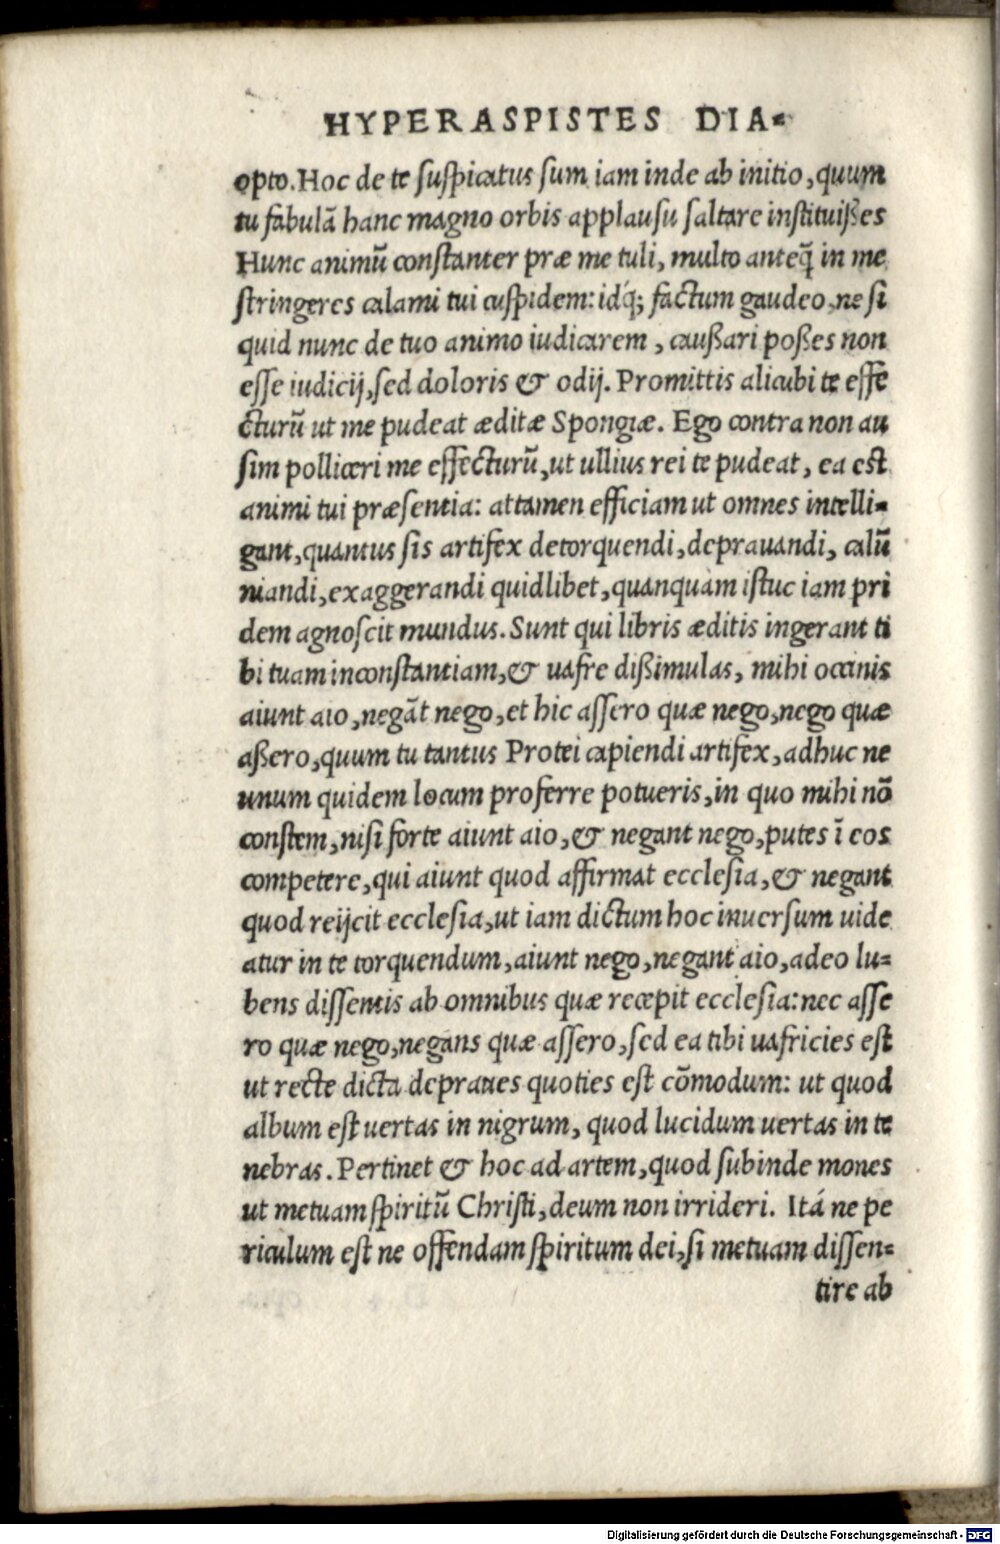 HYPERASPISTES DIA-
opto. Hoc de te suspicatus sum iam inde ab initio, quum
tu fabulā hanc magno orbis applausu saltare instituißes
Hunc animū constanter præ me tuli, multo anteq̃ in me
stringeres calami tui cuspidem: idq́; factum gaudeo, ne si
quid nunc de tuo animo iudicarem, caußari poßes non
esse iudicij, sed doloris & odij. Promittis alicubi te effe
cturū ut me pudeat æditæ Spongiæ. Ego contra non au
sim polliceri me effecturū, ut ullius rei te pudeat, ea est
animi tui præsentia: attamen efficiam ut omnes intelli-
gant, quantus sis artifex detorquendi, deprauandi, calū
niandi, exaggerandi quidlibet, quanquàm istuc iam pri
dem agnoscit mundus. Sunt qui libris æditis ingerant ti
bi tuam inconstantiam, & uafre dißimulas, mihi occinis
aiunt aio, negāt nego, et hic assero quæ nego, nego quæ
aßero, quum tu tantus Protei capiendi artifex, adhuc ne
unum quidem locum proferre potueris, in quo mihi nō
constem, nisi forte aiunt aio, & negant nego, putes ī eos
competere, qui aiunt quod affirmat ecclesia, & negant
quod reijcit ecclesia, ut iam dictum hoc inuersum uide
atur in te torquendum, aiunt nego, negant aio, adeo lu-
bens dissentis ab omnibus quæ recepit ecclesia: nec asse
ro quæ nego, negans quæ assero, sed ea tibi uafricies est
ut recte dicta depraues quoties est cōmodum: ut quod
album est uertas in nigrum, quod lucidum uertas in te
nebras. Pertinet & hoc ad artem, quod subinde mones
ut metuam spiritū Christi, deum non irrideri. Itá ne pe
riculum est ne offendam spiritum dei, si metuam dissen-
tire ab
Digitalisierung gefördert durch die Deutsche Forschungsgemeinschaft - DFG